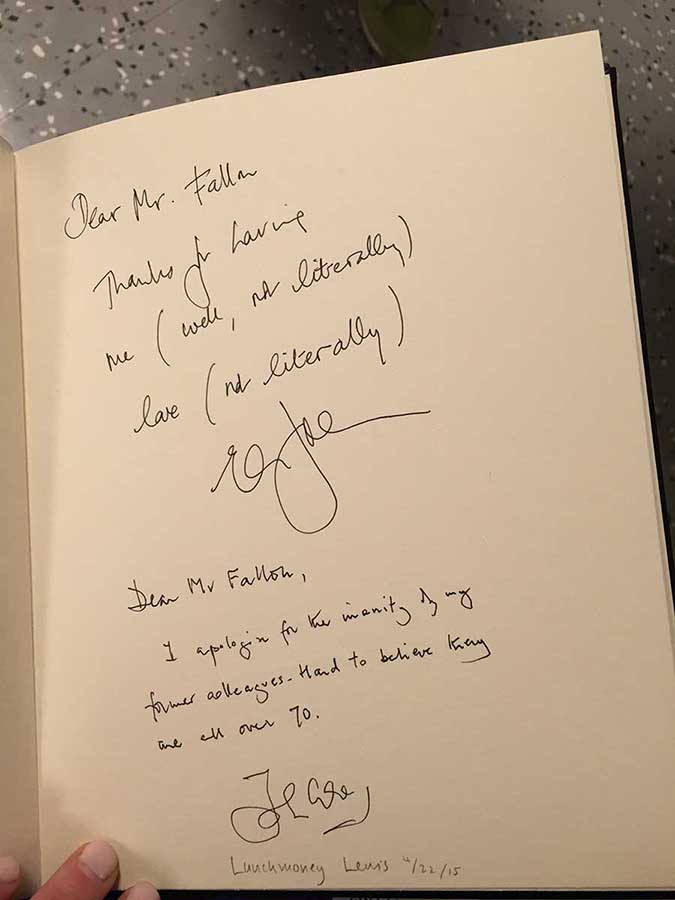 Dear Mr. Fallon
Thanks for having
me (well, not literally)
love (not literally)
Dear Mr Fallon,
I apologize for the inanity of my
former colleagues. Hard to believe they
are all over 70.
Lunchmoney Lewis 4/22/15